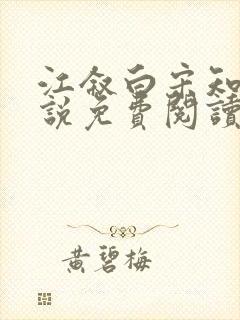 江叙白宋知
說免費閱讀
黄碧梅